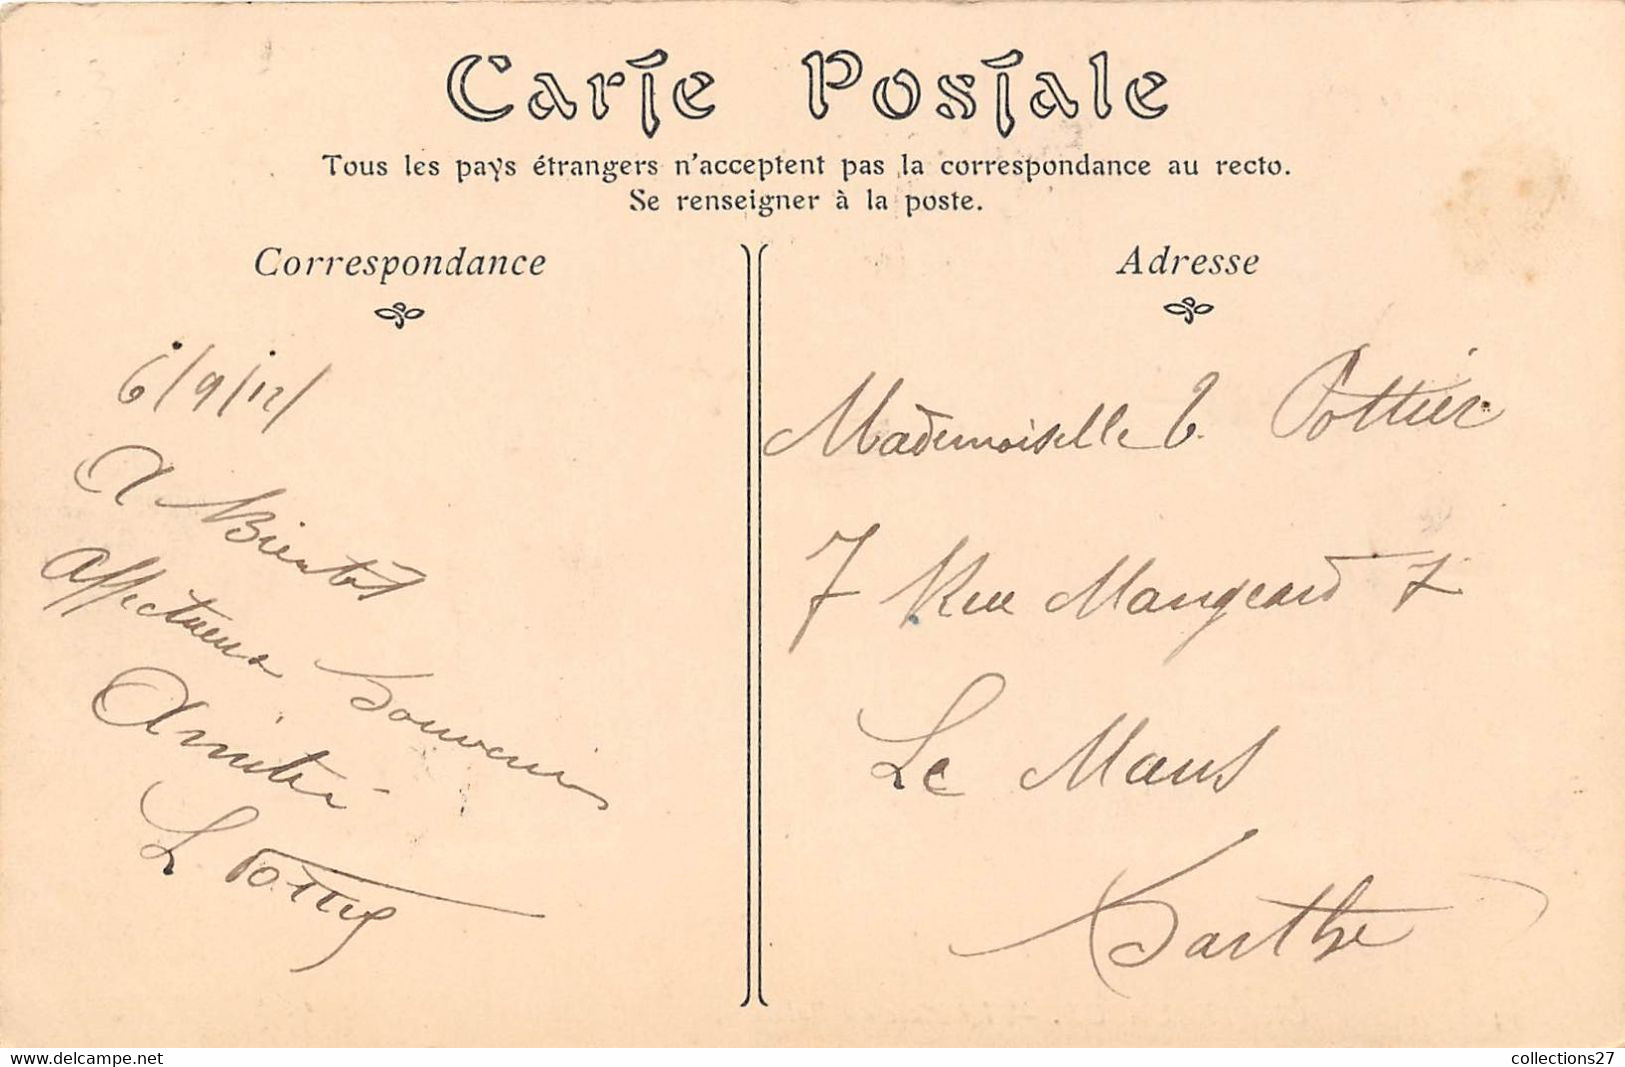 Carte Postale
Tous les pays étrangers n'acceptent pas la correspondance au recto.
Se renseigner à la poste.
Correspondance
6/9/12/
A Bientôt
Affectueux Souvenir
Amitié
L
Adresse
Mademoiselle E. Pottier
7 Rue Mangeard 7
Le Mans
Sarthe
collections27